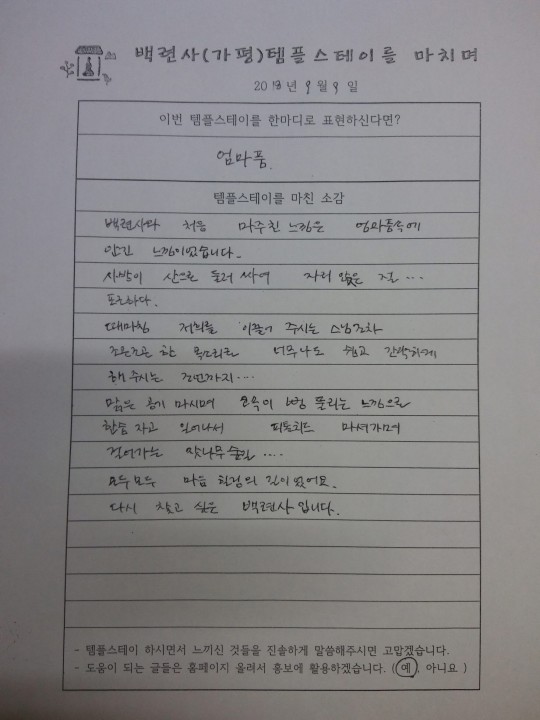 백련사(가평)템플스테이를 마치며
2013년 9월 9일
이번 템플스테이를 한마디로 표현하신다면?
엄마품.
템플스테이를 마친 소감
백련사와 처음 마주친 느낌은 엄마품속에
안긴 느낌이었습니다.
사방이 산으로 둘러 싸여 자리 앉은 절...
포근하다.
때마침 저희를 이끌어 주시는 스님조차
조근조근한 목소리로 너무나도 쉽고 간략하게
해주시는 까지....
맑은 공기 마시며 온속이 뻥 풀리는 느낌으로
한숨 자고 일어나서 피톤치드 마셔가며
걷어가는 잣나무숲길....
모두모두 마음 힐링의 길이었어요.
다시 찾고 싶은 백련사입니다.
- 템플스테이 하시면서 느끼신 것들을 진솔하게 말씀해주시면 고맙겠습니다.
- 도움이 되는 글들은 홈페이지 올려서 홍보에 활용하겠습니다. ( 예, 아니요 )